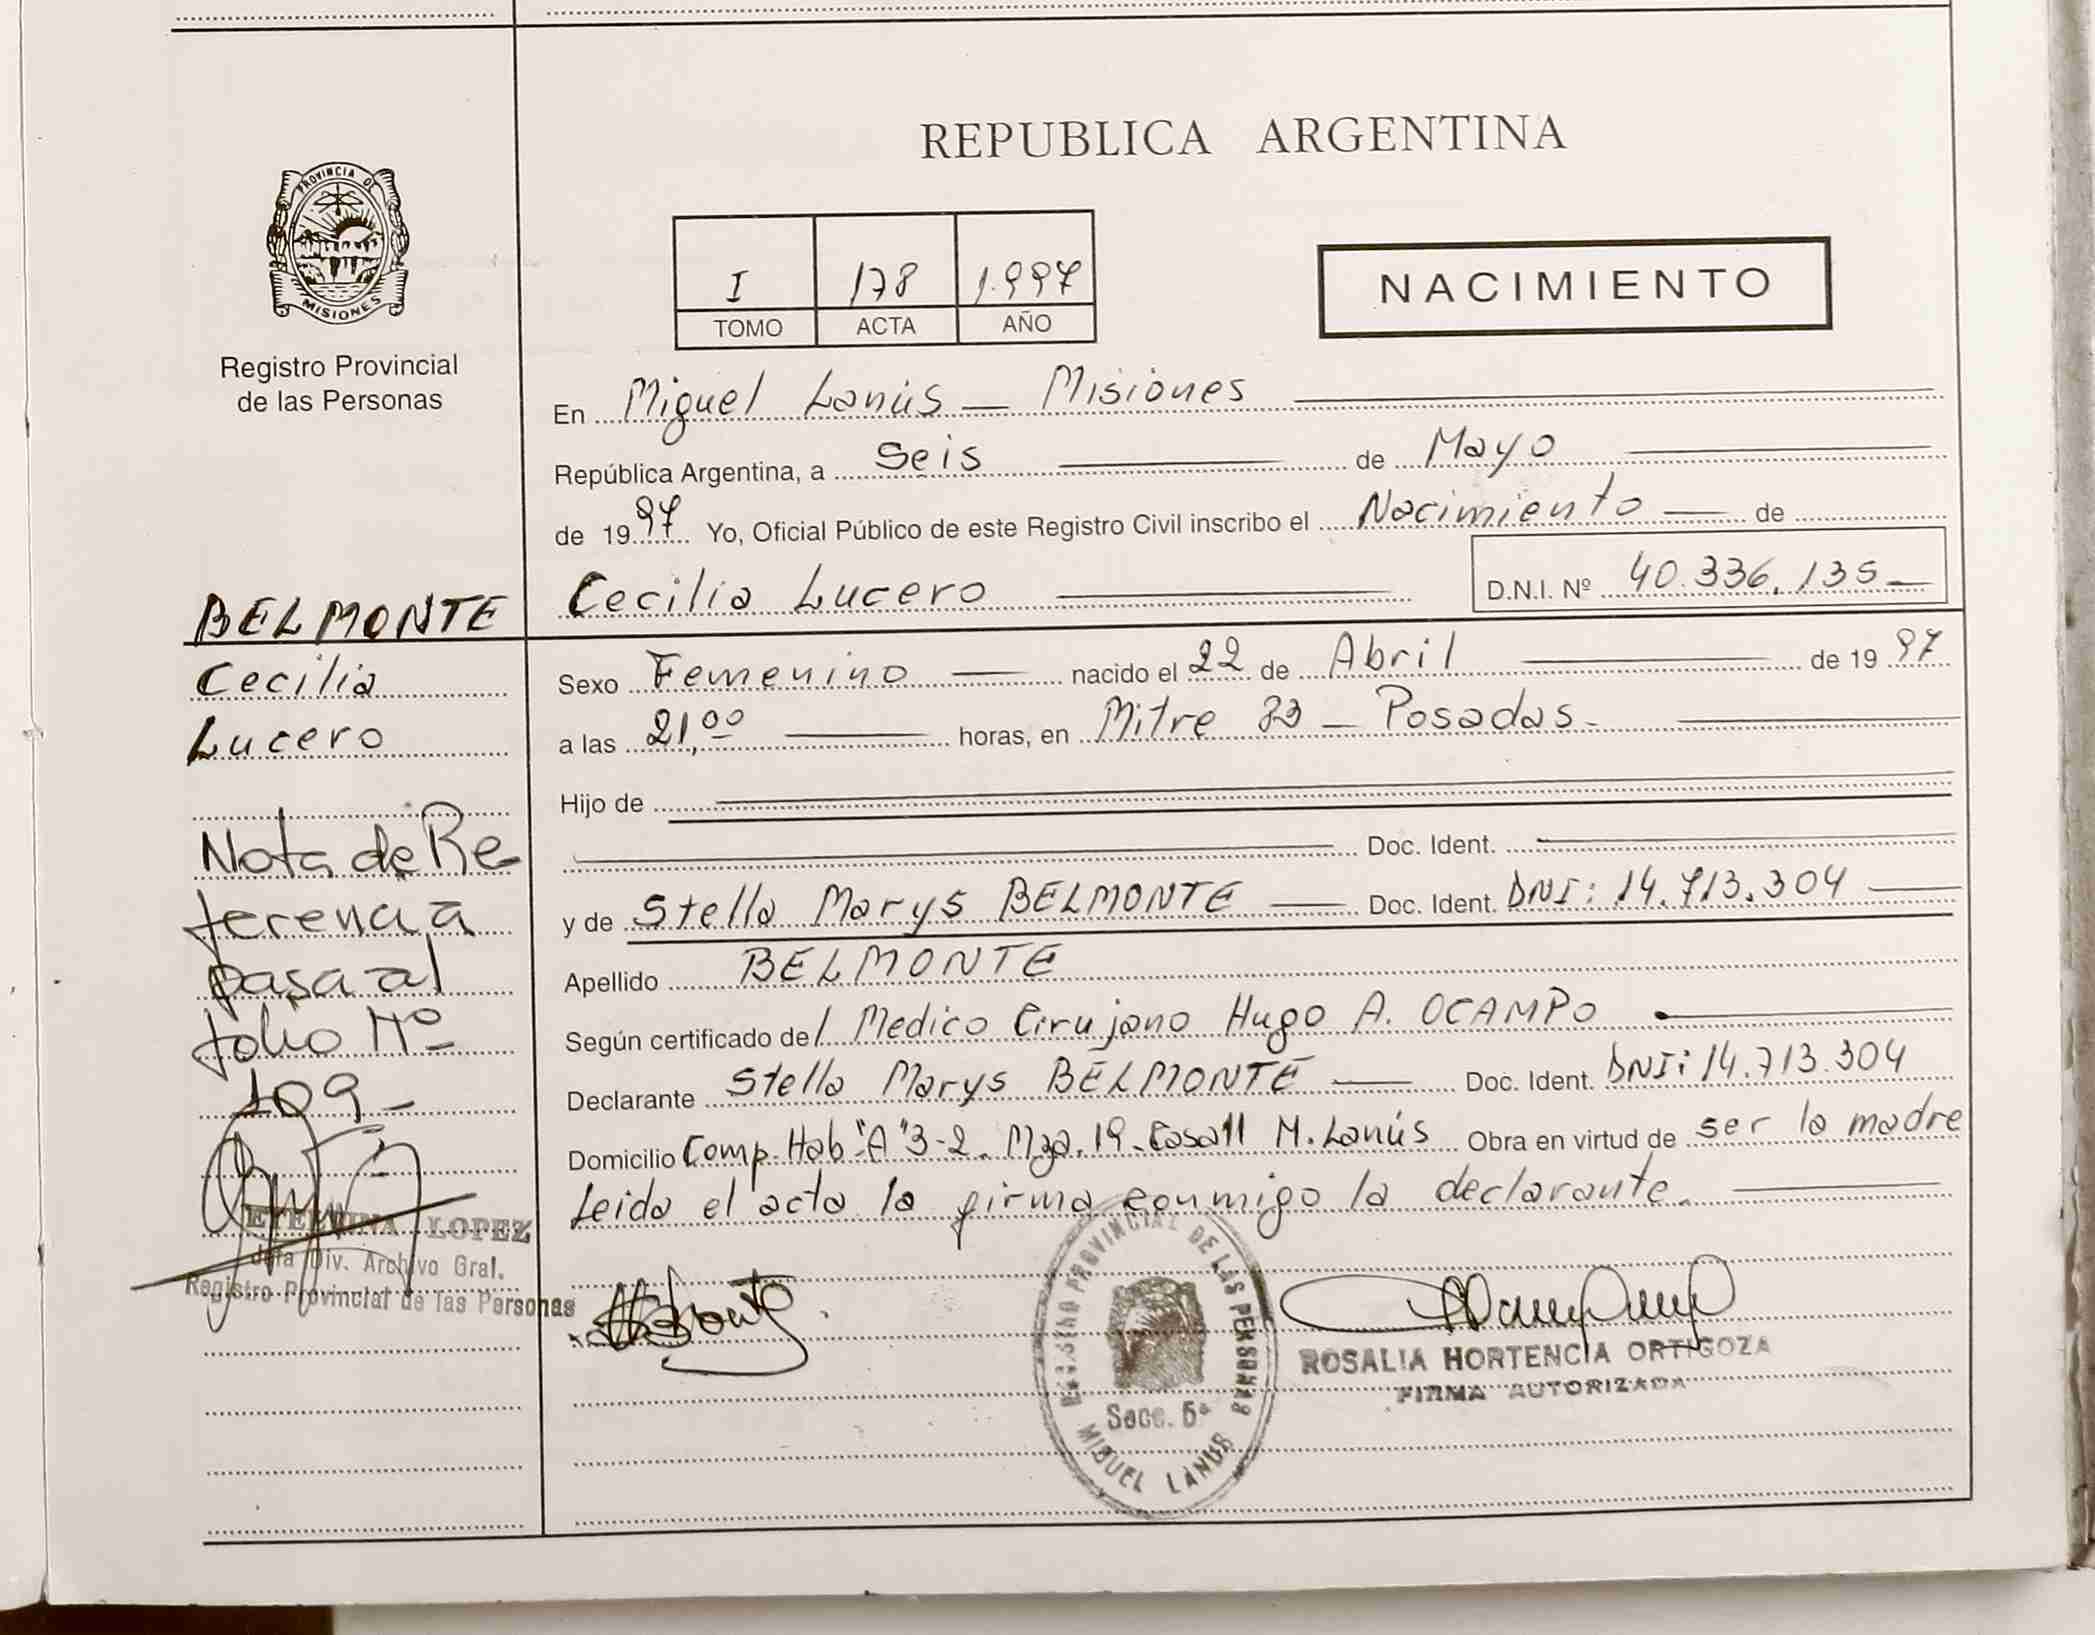 REPUBLICA ARGENTINA
PROVINCIA DE
MISIONES
Registro Provincial
de las Personas
I 178 1.997
TOMO ACTA AÑO
NACIMIENTO
En Miguel Lanús — Misiones
República Argentina, a Seis de Mayo
de 1997 Yo, Oficial Público de este Registro Civil inscribo el Nacimiento — de
Cecilia Lucero D.N.I. Nº 40.336.135
Sexo Femenino nacido el 22 de Abril de 1997
a las 21,00 horas, en Mitre 33 — Posadas.
Hijo de
Doc. Ident.
y de Stella Marys BELMONTE Doc. Ident. DNI: 14.713.304
Apellido BELMONTE
Según certificado del Medico Cirujano Hugo A. OCAMPO
Declarante Stella Marys BELMONTE Doc. Ident. DNI: 14.713.304
Domicilio Comp. Hab "A" 3-2. Mza. 19. Casa 11 M. Lanús Obra en virtud de ser la madre
Leida el acta la firma conmigo la declarante.
BELMONTE
Cecilia
Lucero
Nota de Re
ferencia
pasa al
folio Nº
109
ETELVINA LOPEZ
Jefa Div. Archivo Gral.
Registro Provincial de las Personas
REGISTRO PROVINCIAL DE LAS PERSONAS
Secc. 5ª
MIGUEL LANUS
ROSALIA HORTENCIA ORTIGOZA
FIRMA AUTORIZADA